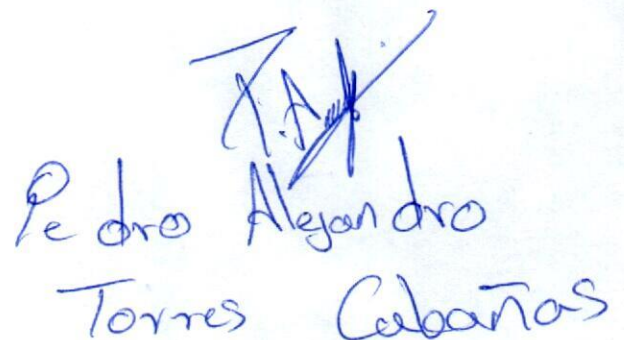 Pedro Alejandro
Torres Cabañas